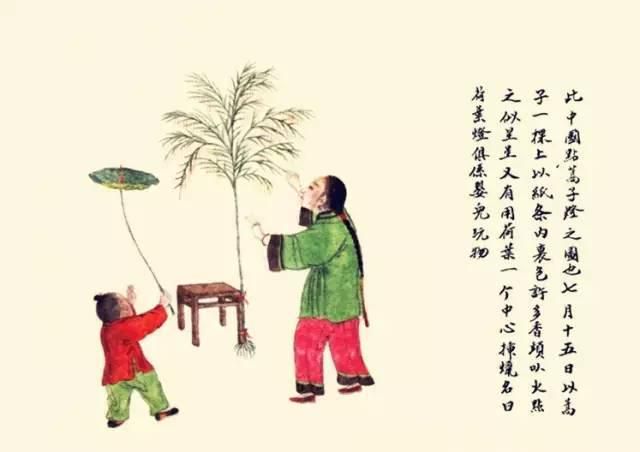 此中國點蒿子燈之圖也七月十五日以蒿
子一棵上以紙条内裹包許多香頭以火點
之似星星又有用荷葉一个中心插燒名曰
荷葉燈俱係嬰兒玩物